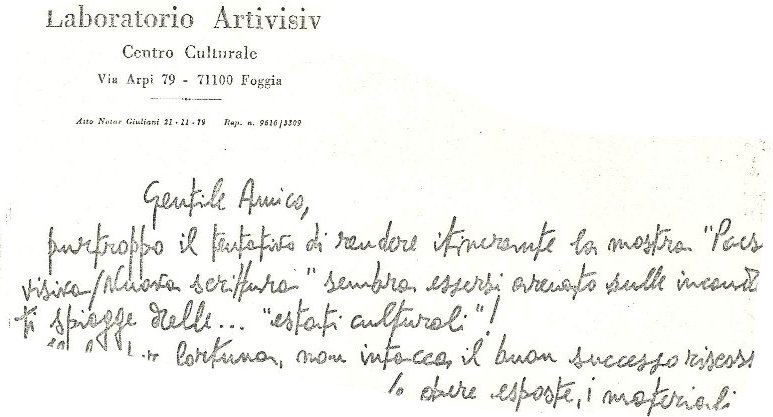 Laboratorio Artivisiv
Centro Culturale
Via Arpi 79 - 71100 Foggia
Atto Notar Giuliani 21 - 11 - 79 Rep. n. 9616/3309
Gentile Amico,
purtroppo il tentativo di rendere itinerante la mostra "Poes
visiva/Nuova scrittura" sembra essersi arenato sulle incant
ti spiagge delle... "estati culturali"!
fortuna, non intacca il buon successo riscos
opere esposte, i materiali